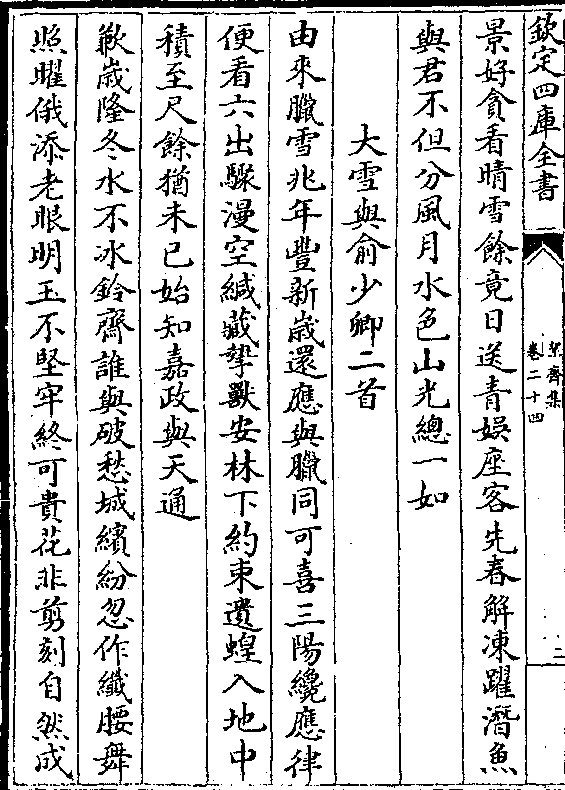 欽定四庫全書
絜齊集
卷二十四
二
景好貪看晴雪餘竟日送青娛座客先春解凍躍潛魚
與君不但分風月水色山光總一如
大雪與俞少卿二首
由來臘雪兆年豐新歲還應與臘同可喜三陽纔應律
便看六出驟漫空緘藏摯獸安林下約束遺蝗入地中
積至尺餘猶未已始知嘉政與天通
歉歲隆冬水不冰鈴齋誰與破愁城繽紛忽作纖腰舞
照曜俄添老眼明玉不堅牢終可貴花非剪刻自然成